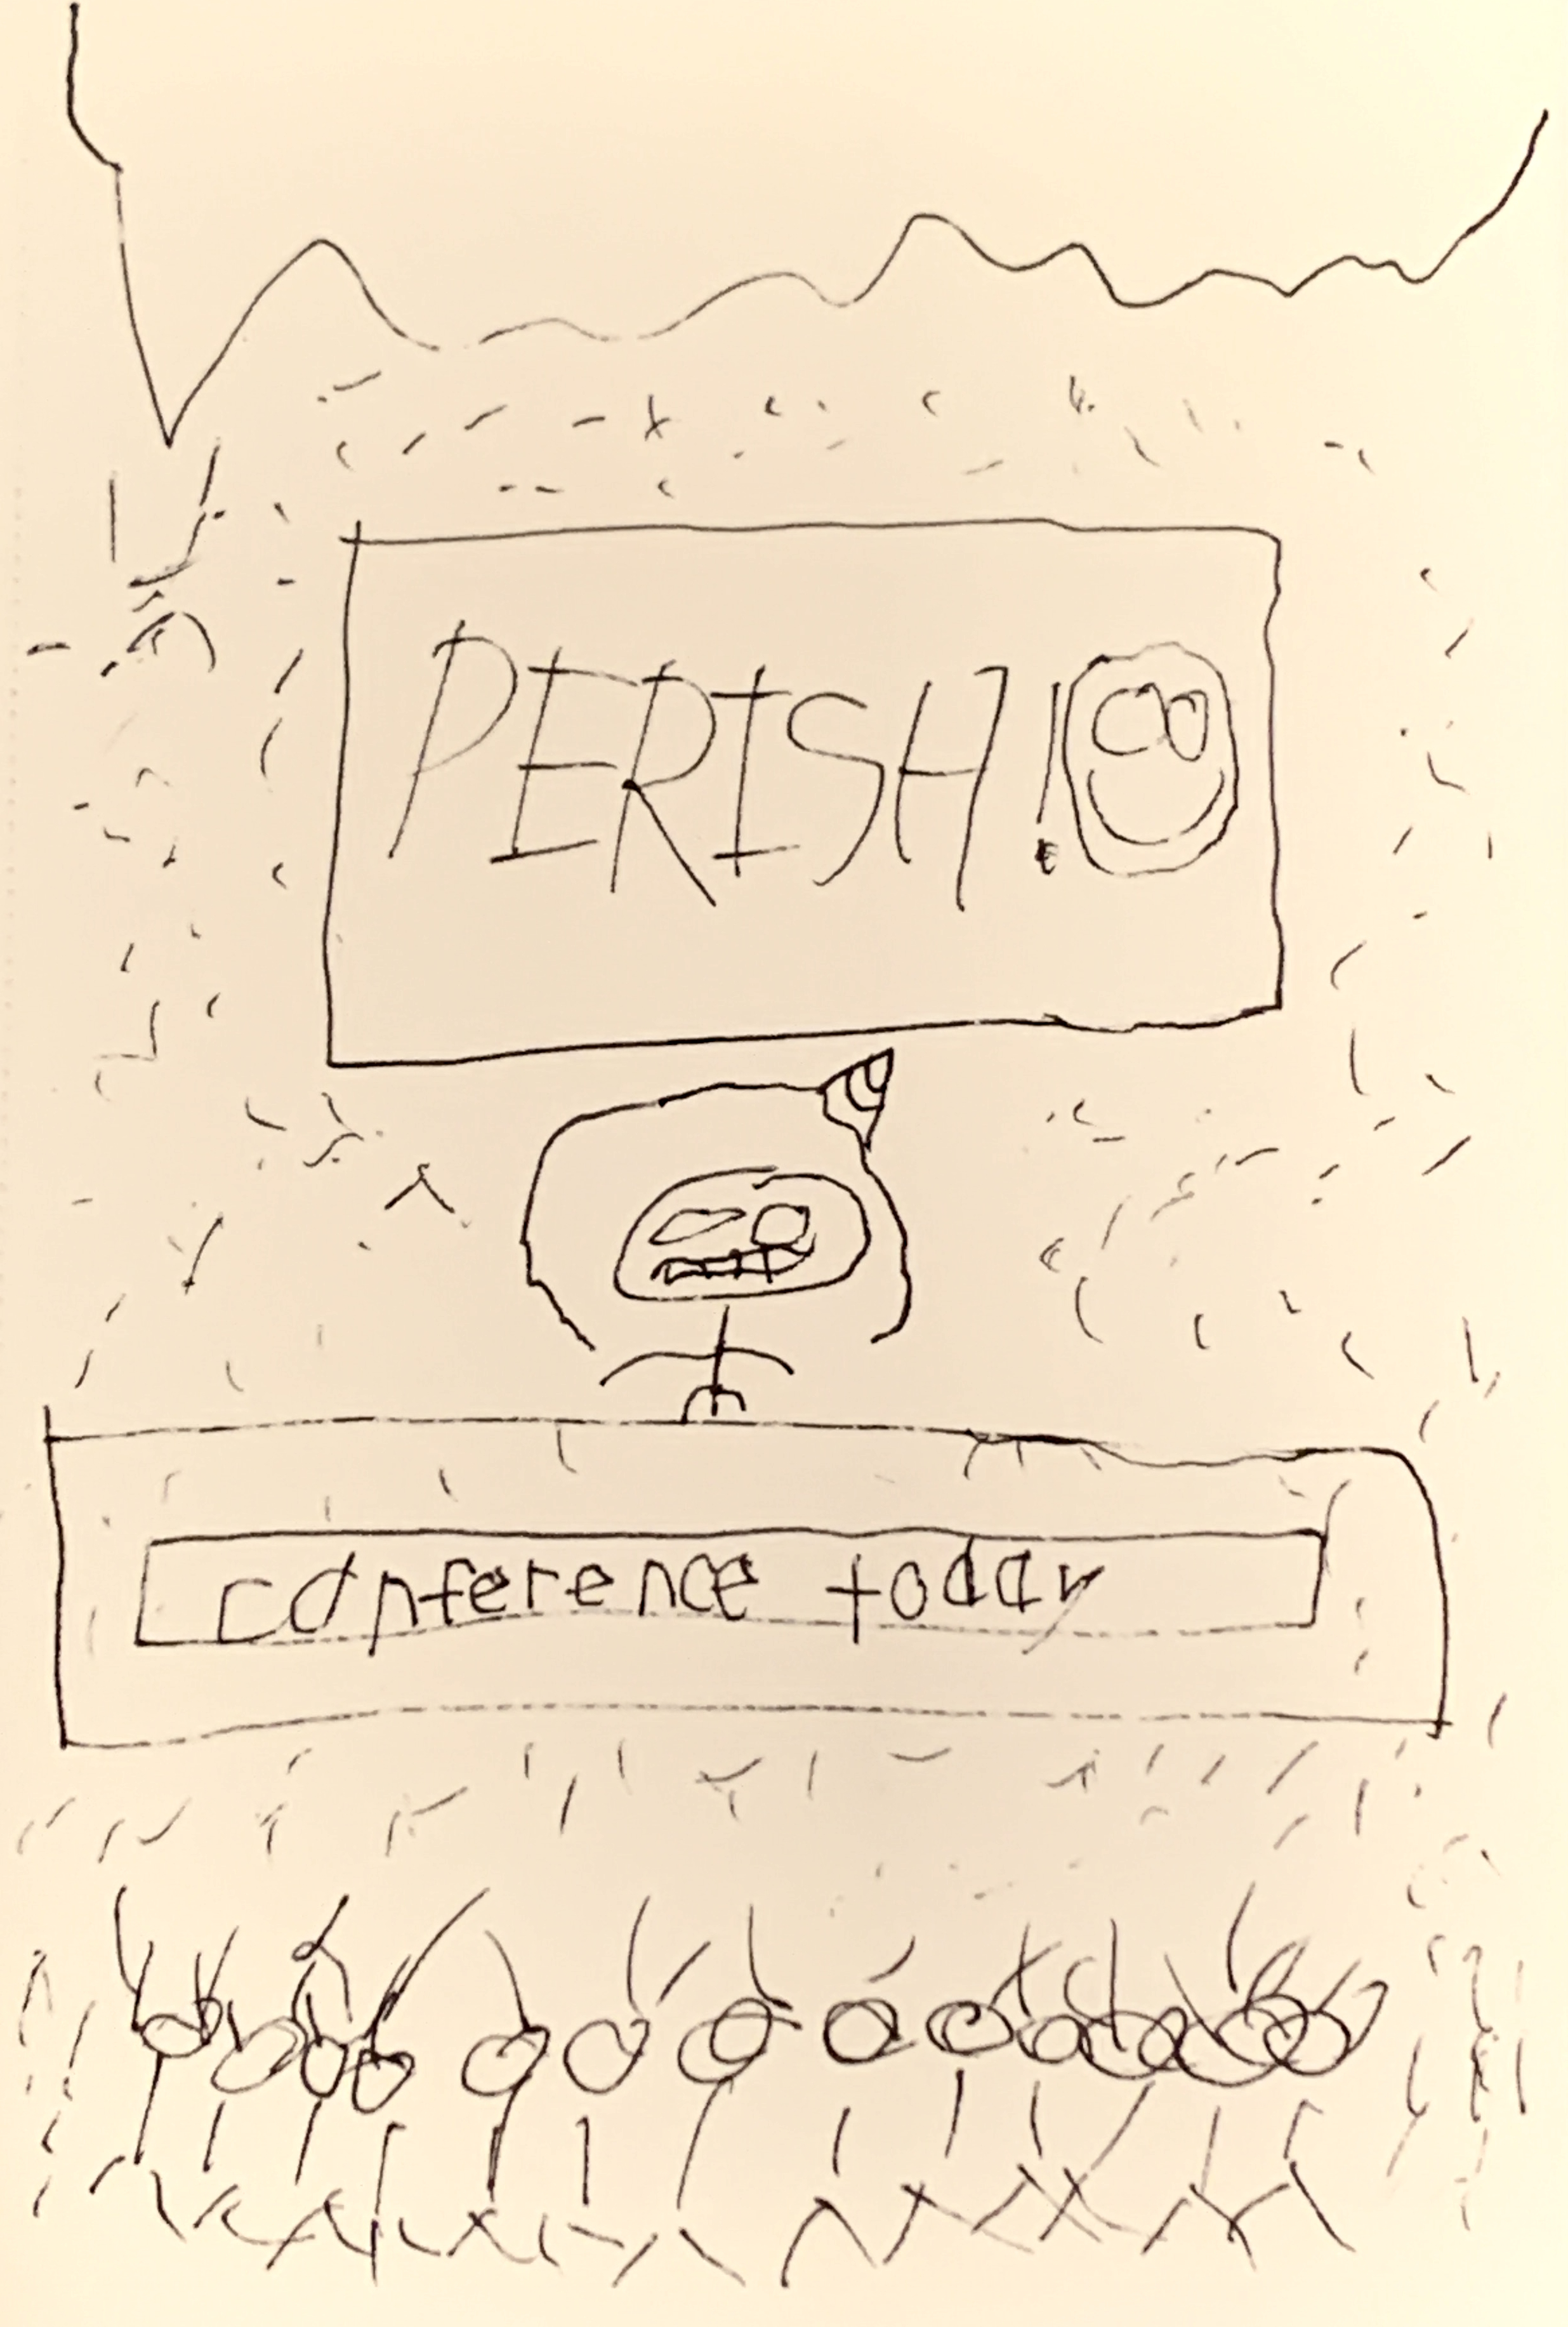 PERISH!
conference today